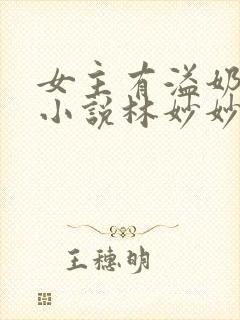 女主有溢奶
小说林妙妙
王穗明